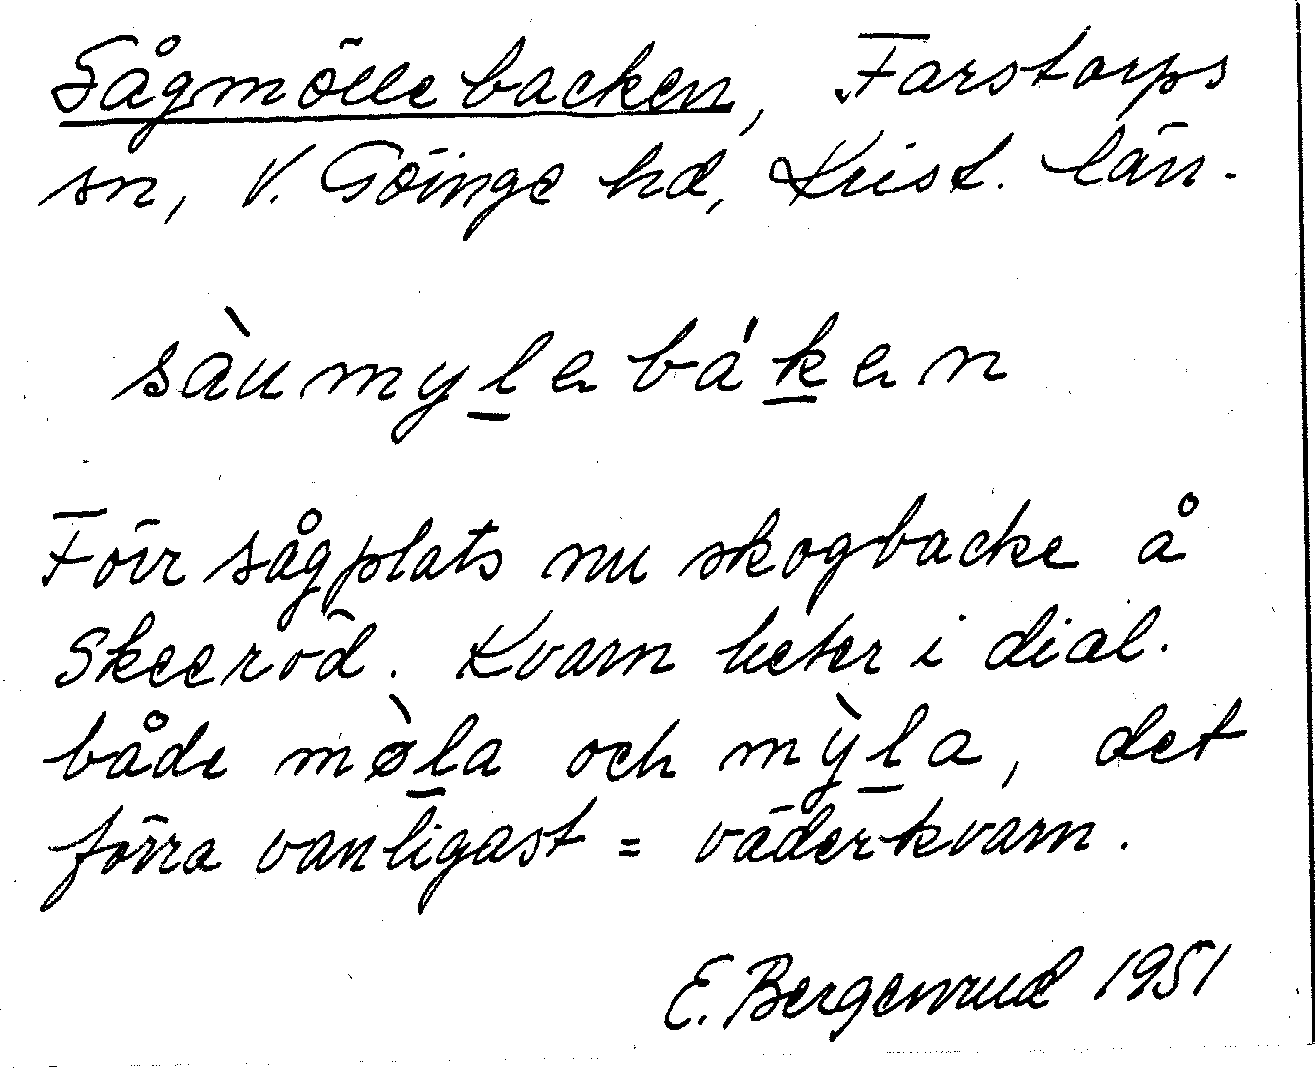 Sågmöllebacken, Farstorps
sn, V. Göinge hd, Krist. län.
sàumylebáken
Förr sågplats nu skogbacke å
Skeeröd. Kvarn heter i dial.
både mø̀la och mỳla, det
förra vanligast = väderkvarn.
E. Bergenrud 1951